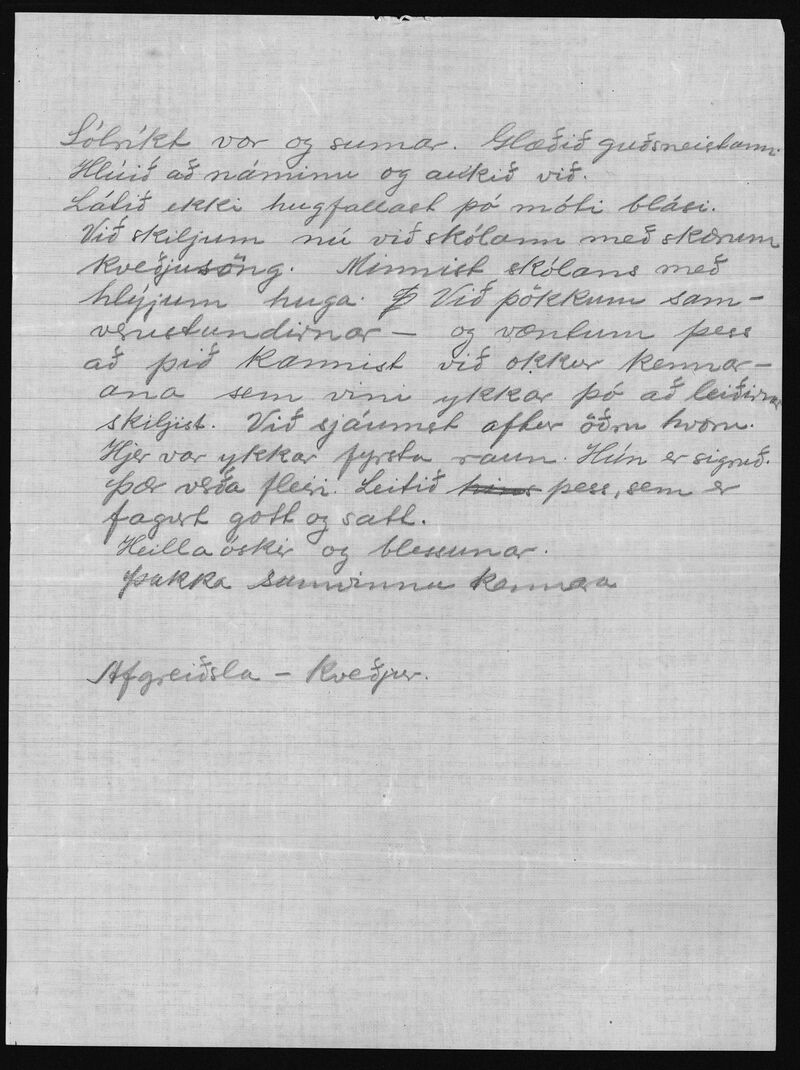 Sólríkt vor og sumar. Glæðið guðsneistann.
Hlúið að náminu og aukið við.
Látið ekki hugfallast þó móti blási.
Við skiljum nú við skólann með skærum
kveðjusöng. Minnist skólans með
hlýjum huga. Við þökkum sam-
verustundirnar — og væntum þess
að þið kannist við okkur kennar-
ana sem vini ykkar þó að leiðirnar
skiljist. Við sjáumst aftur öðru hvoru.
Hjer var ykkar fyrsta raun. Hún er sigruð.
Þær verða fleiri. Leitið þess, sem er
fagurt gott og satt.
Heillaóskir og blessunar.
Þakka samvinnu kennara
Afgreiðsla – Kveðjur.